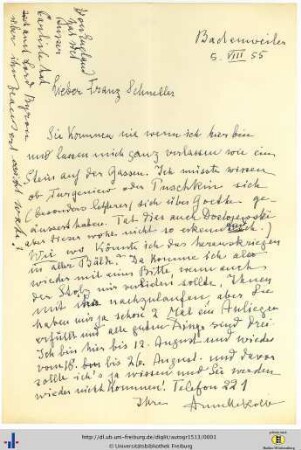 Badenweiler
5. VIII 55
Lieber Franz Schneller
Sie kommen nie wenn ich hier bin
und lassen mich ganz verlassen wie ein
Stein auf der Gassen. Ich müsste wissen
ob Turgeniew oder Puschkin sich
(besonders letzterer) sich über Goethe ge-
äussert haben. Tat dies auch Dostojewski
aber
Wie wo könnte ich das herauskriegen
in aller Bälde? Da komme ich also
wieder mit einer Bitte, wenn auch
der Stolz mir verbieten sollte, Ihnen
mit nachzulaufen aber Sie
haben mir ja schon 2 Mal ein Anliegen
erfüllt und alle guten Dinge sind drei
Ich bin hier bis 12. August und wieder
vom 18. bis 26. August. und davor
sollte ich's ja wissen und Sie werden
wieder nicht kommen! Telefon 221
Ihre Annette Kolb
Von England
ausser
Carlyle und
Lord Byron
über ihn
http://dl.ub.uni-freiburg.de/diglit/autogr1513/0001
© Universitätsbibliothek Freiburg